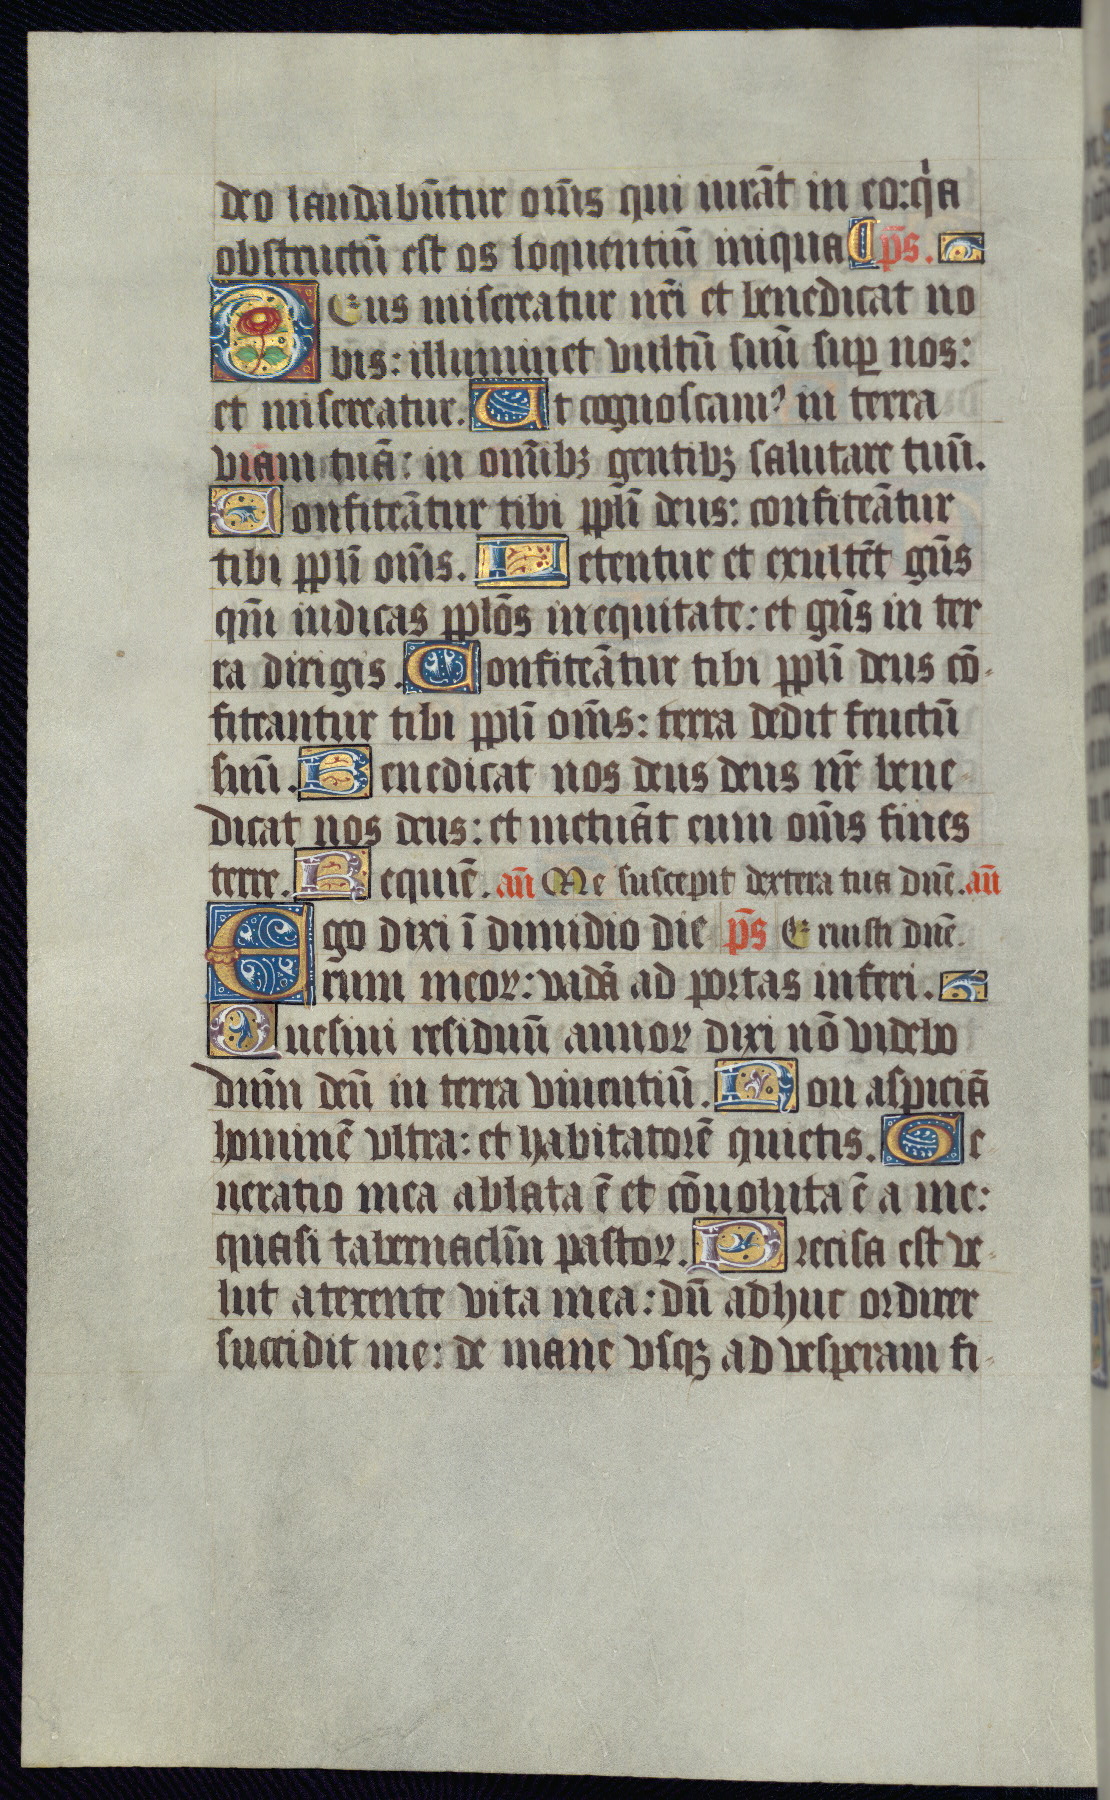 deo laudabūtur om̄s qui iurāt in eo: qͥa
obstructū est os loquentiū iniqua p̄s.
Deus misereatur nr̄i et benedicat no
bis: illuminet vultū suū suꝑ nos:
et misereatur. Ut cognoscamꝰ in terra
viam tuā: in om̄ibꝫ gentibꝫ salutare tuū.
Confiteātur tibi ppl̄i deus: confiteātur
tibi ppl̄i om̄s. Letentur et exultēt gn̄s
qm̄ iudicas ppl̄os in equitate: et gn̄s in ter
ra dirigis. Confiteātur tibi ppl̄i deus cō-
fiteantur tibi ppl̄i om̄s: terra dedit fructū
suū. Benedicat nos deus deus nr̄ bene-
dicat nos deus: et metuāt eum om̄s fines
terre. Requiē. an̄ Me suscepit dextera tua dn̄e. an̄
Ego dixi ī dimidio die p̄s Eruisti dn̄e.
rum meoꝝ: vadā ad portas inferi.
Quesiui residuū annoꝝ dixi nō videbo
dn̄m deū in terra viuentiū. Non aspiciā
hominē vltra: et habitatorē quietis. Ge
neratio mea ablata ē et cōuoluta ē a me:
quasi tabernacl̄m pastoꝝ. Precisa est ve-
lut a texente vita mea: dū adhuc ordirer
succidit me: de mane vsqꝫ ad vesperam fi-